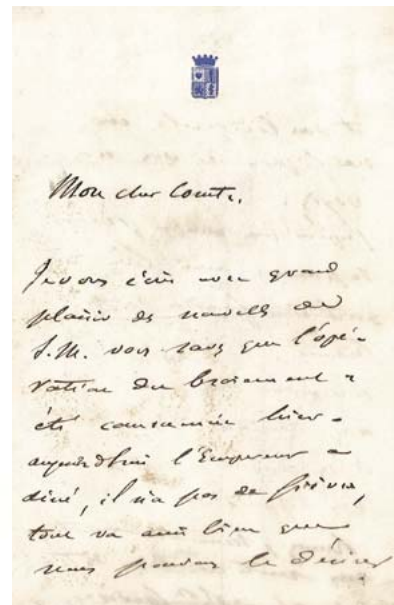 Mon cher Comte,
Je vous écris avec grand
plaisir des nouvelles de
S. M. vous savez que l'opé-
ration du broiement a
été commencée hier -
aujourd'hui l'Empereur a
diné, il n'a pas de fièvre,
tout va aussi bien que
nous pouvons le désirer